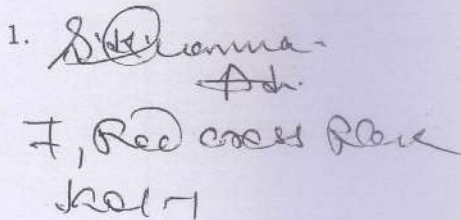 1. S. K. Sharma
Adv.
7, Red cross Place
Kol-1